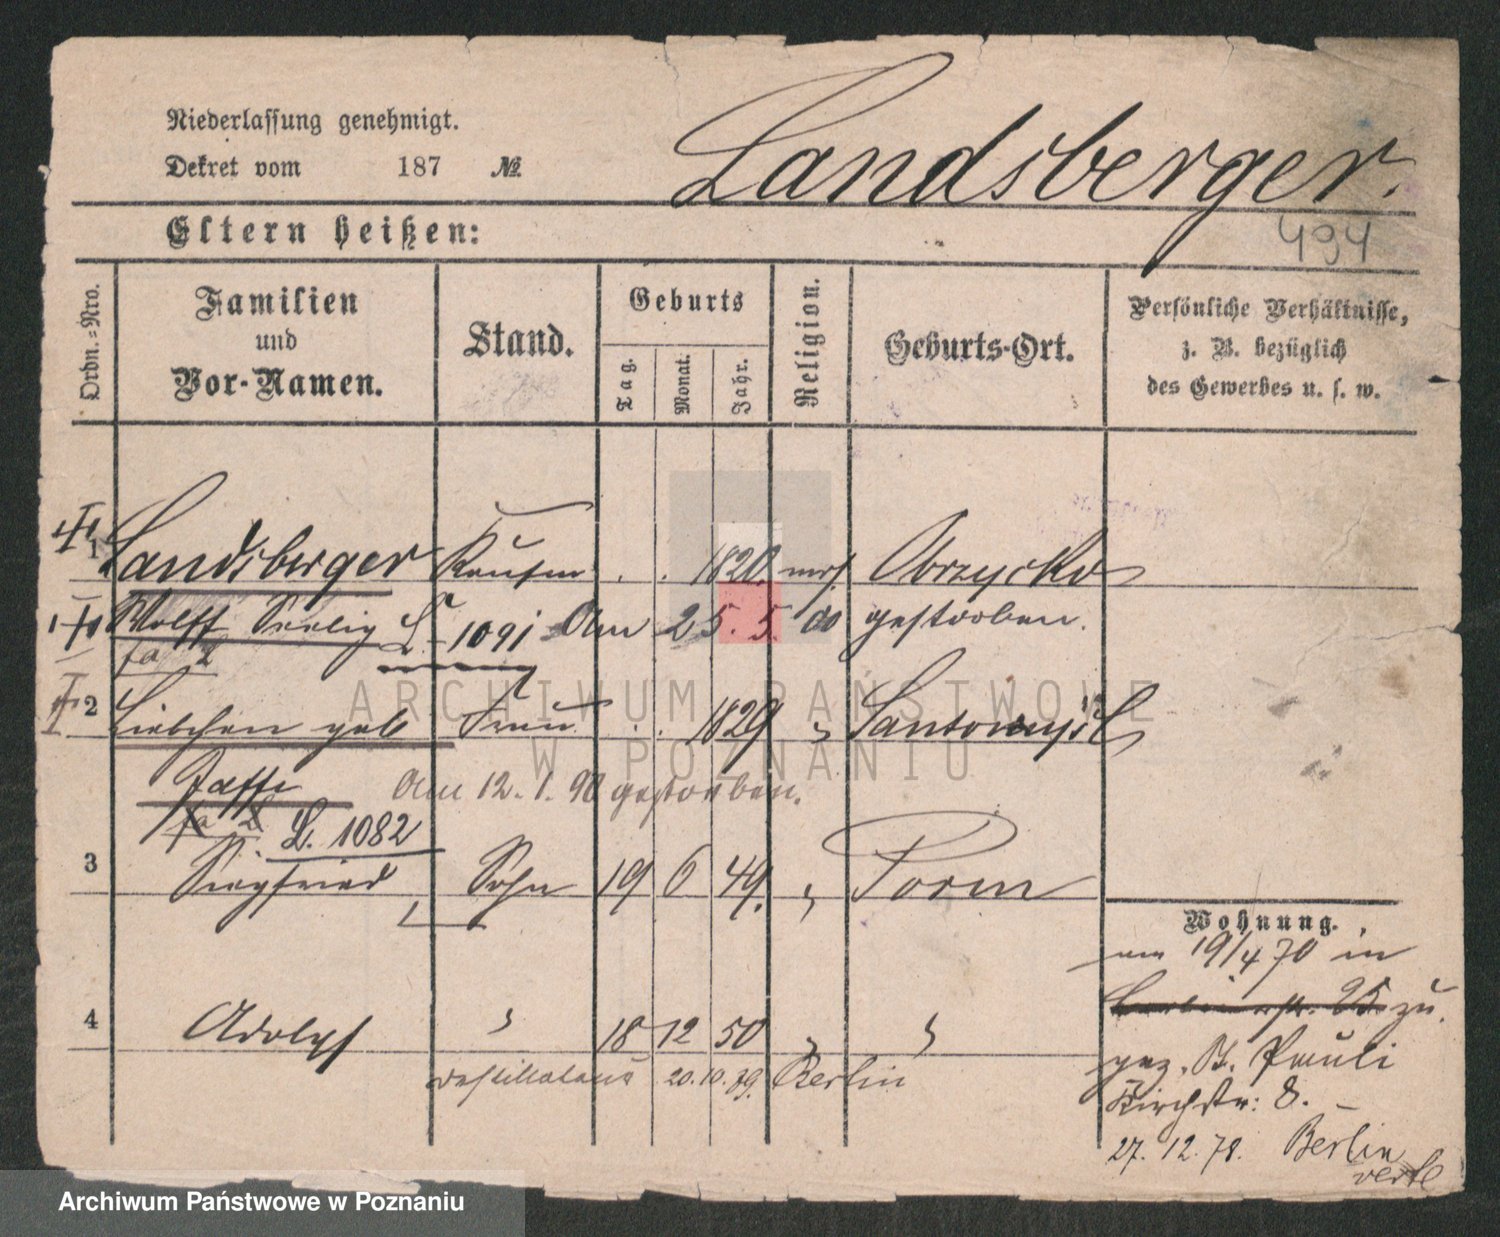 Niederlassung genehmigt.
Dekret vom 187 №
Landsberger.
Eltern heißen:
494
Ordn.=Nro.
Familien
und
Vor-Namen.
Stand.
Geburts
Tag.
Monat.
Jahr.
Religion.
Geburts-Ort.
Persönliche Verhältnisse,
z. B. bezüglich
des Gewerbes u. s. w.
1 Landsberger Kaufm . . 1820 mos Obrzycko
Wolff Seelig L. 1091 Am 25. 5. 80 gestorben.
fa 2
2 Liebchen geb Frau . . 1829 " Santomysl
Jaffe Am 12. 1. 90 gestorben.
fa 2 L. 1082
3 Siegfried Sohn 19 6 49. " Posen
Wohnung.
am 19/4 70 in
zu.
4 Adolph " 18 12 50 " "
gez. St. Pauli
Destillateur 20. 10. 79. Berlin
Kirchstr: 8. –
27. 12. 78. Berlin
verte
ARCHIWUM PAŃSTWOWE
W POZNANIU
Archiwum Państwowe w Poznaniu